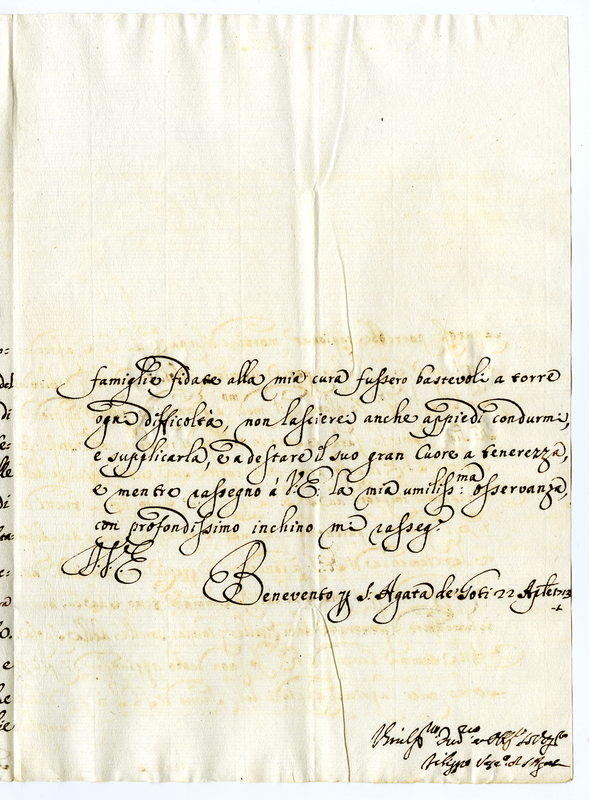 famiglie fidate alla mia cura fussero bastevoli a torre
ogne difficoltà, non lascierei anche appiedi condurmi,
e supplicarla, e a destare il suo gran Cuore a tenerezza,
e mentre rassegno á V.E. la mia umiliss:ma osservanza,
con profondissimo inchino me rasseg.o
D.V.E
Benevento p S. Agata de Goti 22 Aple 1713
Filippo